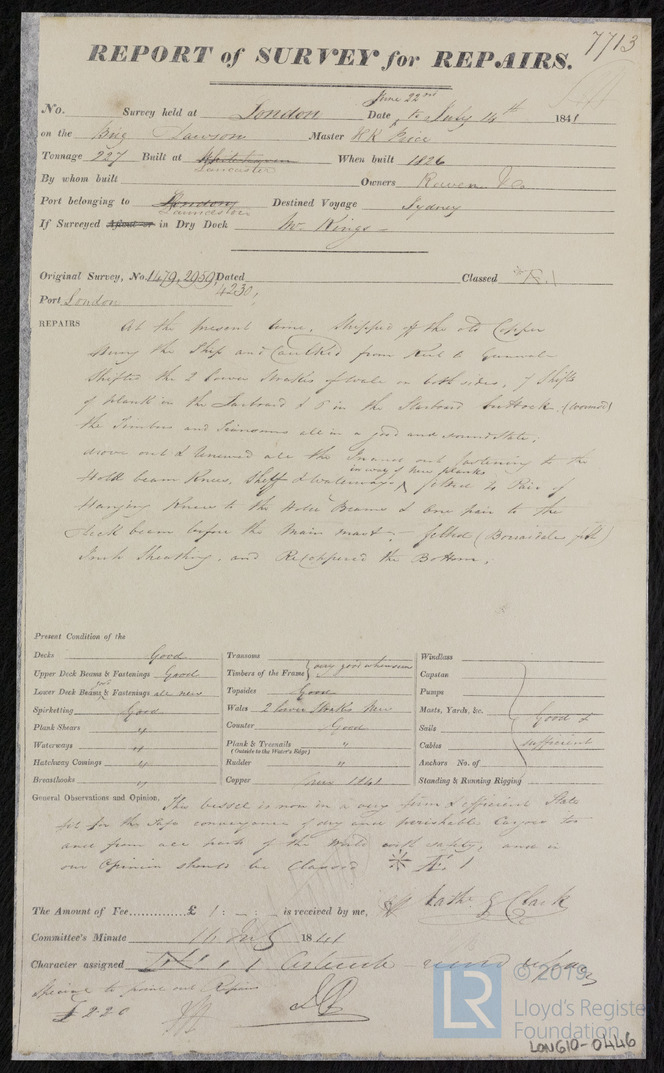 7713
REPORT of SURVEY for REPAIRS.
No. Survey held at London Date June 22nd to July 14th 1841
on the Brig Lawson Master
Tonnage 227 Built at Whitehaven Lancaster When built 1826
By whom built Owners
Port belonging to London Launceston Destined Voyage Sydney
If Surveyed Afloat or in Dry Dock Mr Kings
Original Survey, No. 1479, 2959, 4230, Dated Classed
Port London
REPAIRS At the present time, Stripped off the old Copper
the Ship and Caulked from Keel to Gunwale
Shifted the 2 lower Strakes of Wale on both sides, 7 Shifts
of plank in the Larboard & 5 in the Starboard buttock (wormed)
the Timbers and all in a good and sound State,
drove out & renewed all the In and out fastening to the
in way of new planks
Hold beam Knees, Shelf & Waterways fitted 10 Pair of
Hanging Knees to the Hold Beams & One pair to the
deck beam before the Main mast felted (Borradaile felt)
Sheathing, and Recoppered the Bottom.
Present Condition of the
Decks Good
Upper Deck Beams & Fastenings Good
Lower Deck Beams & Fastenings all new
Spirketting Good
Plank Shears "
Waterways "
Hatchway Comings "
Breasthooks "
Transoms
Timbers of the Frame very good where seen
Topsides Good
Wales 2 lower Strakes New
Counter Good
Plank & Treenails "
(Outside to the Water's Edge)
Rudder "
Copper new 1841
Windlass
Capstan
Pumps
Masts, Yards, &c.
Sails
Cables
Anchors No. of
Standing & Running Rigging
Good & sufficient
General Observations and Opinion. This vessel is now in a very firm & efficient State
fit for the safe conveyance of dry and perishable Cargoes to
and from all parts of the World with safety, and in
our Opinion should be Classed
The Amount of Fee £ 1 : - : - is received by me, Nathl G Clark
Committee's Minute 16 July 1841
Character assigned
special to point out Repairs
£220
© 2019
LR Lloyd's Register
Foundation
LON610-0446